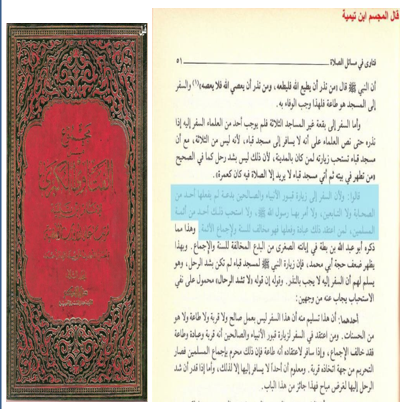 قال المجسم ابن تيمية
فتاوى في مسائل الصلاة
٥١
أن النبي ﷺ قال «من نذر أن يطيع الله فليطعه، ومن نذر أن يعصي الله فلا يعصه»(١) والسفر
إلى المسجد هو طاعة فلهذا وجب الوفاء به.
وأما السفر إلى بقعة غير المساجد الثلاثة فلم يوجب أحد من العلماء السفر إليه إذا
نذره حتى نص العلماء على أنه لا يسافر إلى مسجد قباء، لأنه ليس من الثلاثة، مع أن
مسجد قباء تستحب زيارته لمن كان بالمدينة، لأن ذلك ليس بشد رحل كما في الصحيح
«من تطهر في بيته ثم أتى مسجد قباء لا يريد إلا الصلاة فيه كان كعمرة».
قالوا: ولأن السفر إلى زيارة قبور الأنبياء والصالحين بدعة لم يفعلها أحد من
الصحابة ولا التابعين، ولا أمر بها رسول الله ﷺ، ولا استحب ذلك أحد من أئمة
المسلمين، فمن اعتقد ذلك عبادة وفعلها فهو مخالف للسنة ولإجماع الأئمة وهذا مما
ذكره أبو عبد الله بن بطة في إبانته الصغرى من البدع المخالفة للسنة والإجماع. وبهذا
يظهر ضعف حجة أبي محمد، فإن زيارة النبي ﷺ لمسجد قباء لم تكن بشد الرحل، وهو
يسلم لهم أن السفر إليه لا يجب بالنذر. وقوله إن قوله «لا تشد الرحال» محمول على نفي
الاستحباب يجاب عنه من وجهين:
أحدهما: أن هذا تسليم منه أن هذا السفر ليس بعمل صالح ولا قربة ولا طاعة ولا هو
من الحسنات. ومن اعتقد في السفر لزيارة قبور الأنبياء والصالحين أنه قربة وعبادة وطاعة
فقد خالف الإجماع، وإذا سافر لاعتقاده أنه طاعة فإن ذلك محرم بإجماع المسلمين فصار
التحريم من جهة اتخاذه قربة. ومعلوم أن أحداً لا يسافر إليها إلا لذلك، وأما إذا قدر أن شد
الرحل إليها لغرض مباح فهذا جائز من هذا الباب.